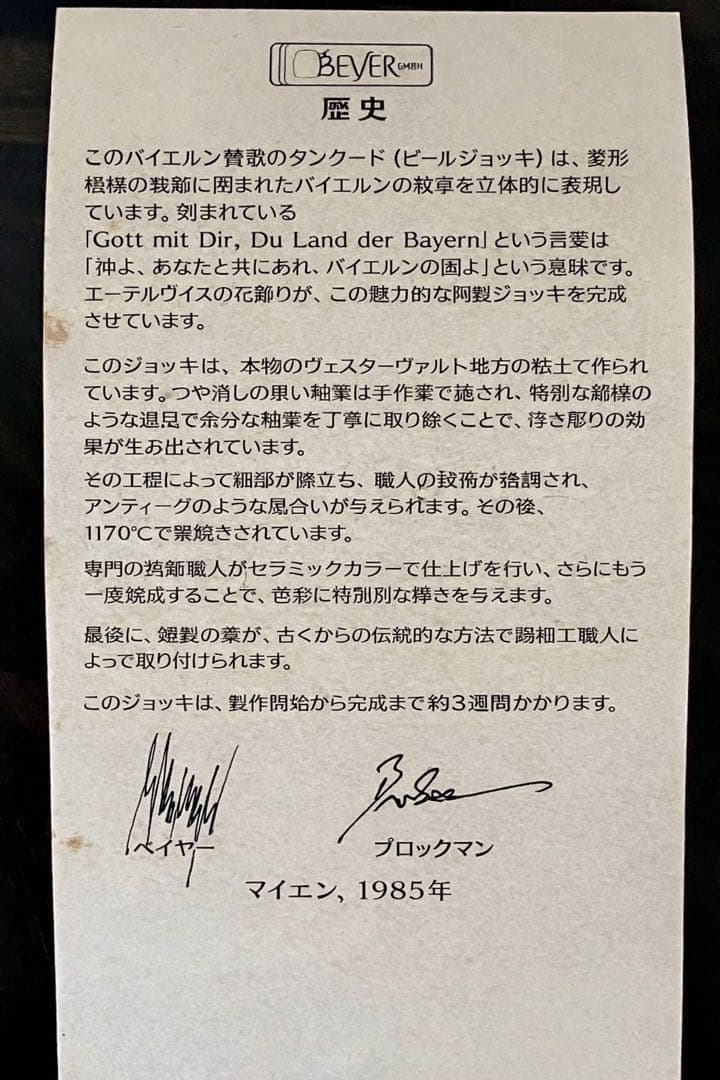 BEYER GMBH
歴史
このバイエルン賛歌のタンクード (ビールジョッキ) は、菱形
の に まれたバイエルンの紋章を立体的に表現し
ています。刻まれている
「Gott mit Dir, Du Land der Bayern」という言葉は
「神よ、あなたと共にあれ、バイエルンの国よ」という意味です。
エーデルヴイスの花飾りが、この魅力的な ジョッキを完成
させています。
このジョッキは、本物のヴェスターヴァルト地方の粘土で作られ
ています。つや消しの い釉薬は手作業で施され、特別な の
ような で余分な釉薬を丁寧に取り除くことで、浮き彫りの効
果が生お出されています。
その工程によって細部が際立ち、職人の が強調され、
アンティーグのような風合いが与えられます。その後、
1170℃で 焼きされています。
専門の 職人がセラミックカラーで仕上げを行い、さらにもう
一度焼成することで、色彩に特別別な輝きを与えます。
最後に、 製の が、古くからの伝統的な方法で 細工職人に
よっで取り付けられます。
このジョッキは、製作開始から完成まで約3週間かかります。
ベイヤー
ブロックマン
マイエン、1985年